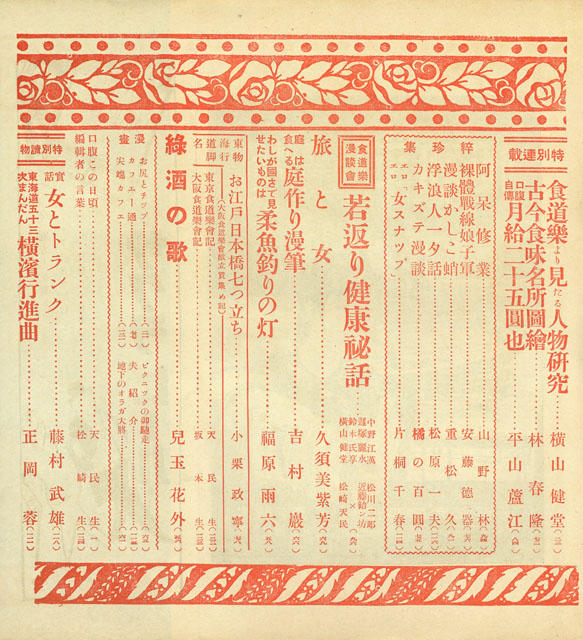 特別連載
食道樂より見たる人物研究 横山健堂
古今食味名所圖繪 林春隆
口腹自傳 月給二十五圓也 平山蘆江
粹珍集
阿呆修業 山野林
裸體戰線娘子軍 安藤德器
漫談かしこ蛸 重松久
浮浪人一夕話 松原一夫
カキズテ漫談 橘の百圓
エロ「女スナップ」 片桐千春
食道樂漫談會
若返り健康秘話
中野江漢 松川二郎
鈴木氏享
横山健堂 松崎天民
旅と女 久須美紫芳
庭は食へる 庭作り漫筆 吉村巖
わしが國さで見せたいものは 柔魚釣りの灯 福原雨六
東海道名物行脚
お江戸日本橋七つ立ち 小栗政寧
東京食道樂會記 天民生
大阪食道樂會記 坂本生
綠酒の歌 兒玉花外
漫畫
お尻とチップ
ピクニツクの御馳走
カフエー通
夫紹介
尖端カフエ
地下のオラガ大將
口腹この日頃 天民生
編輯者の言葉 松崎生
特別讀物
實話 女とトランク 藤村武雄
東海道五十三次まんだん 横濱行進曲 正岡蓉